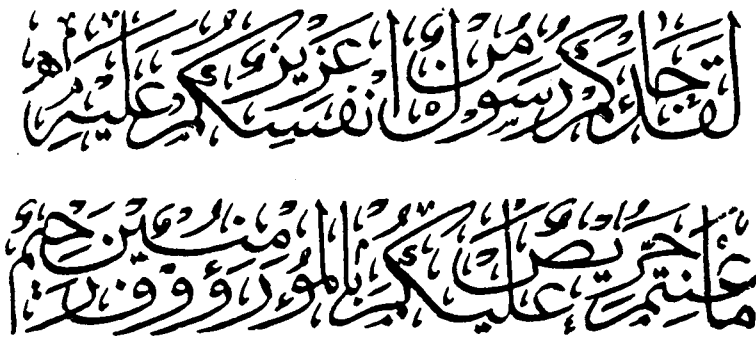 لَقَدْ جَاءَكُمْ رَسُولٌ مِنْ أَنْفُسِكُمْ عَزِيزٌ عَلَيْهِ
مَا عَنِتُّمْ حَرِيصٌ عَلَيْكُمْ بِالْمُؤْمِنِينَ رَؤُوفٌ رَحِيمٌ